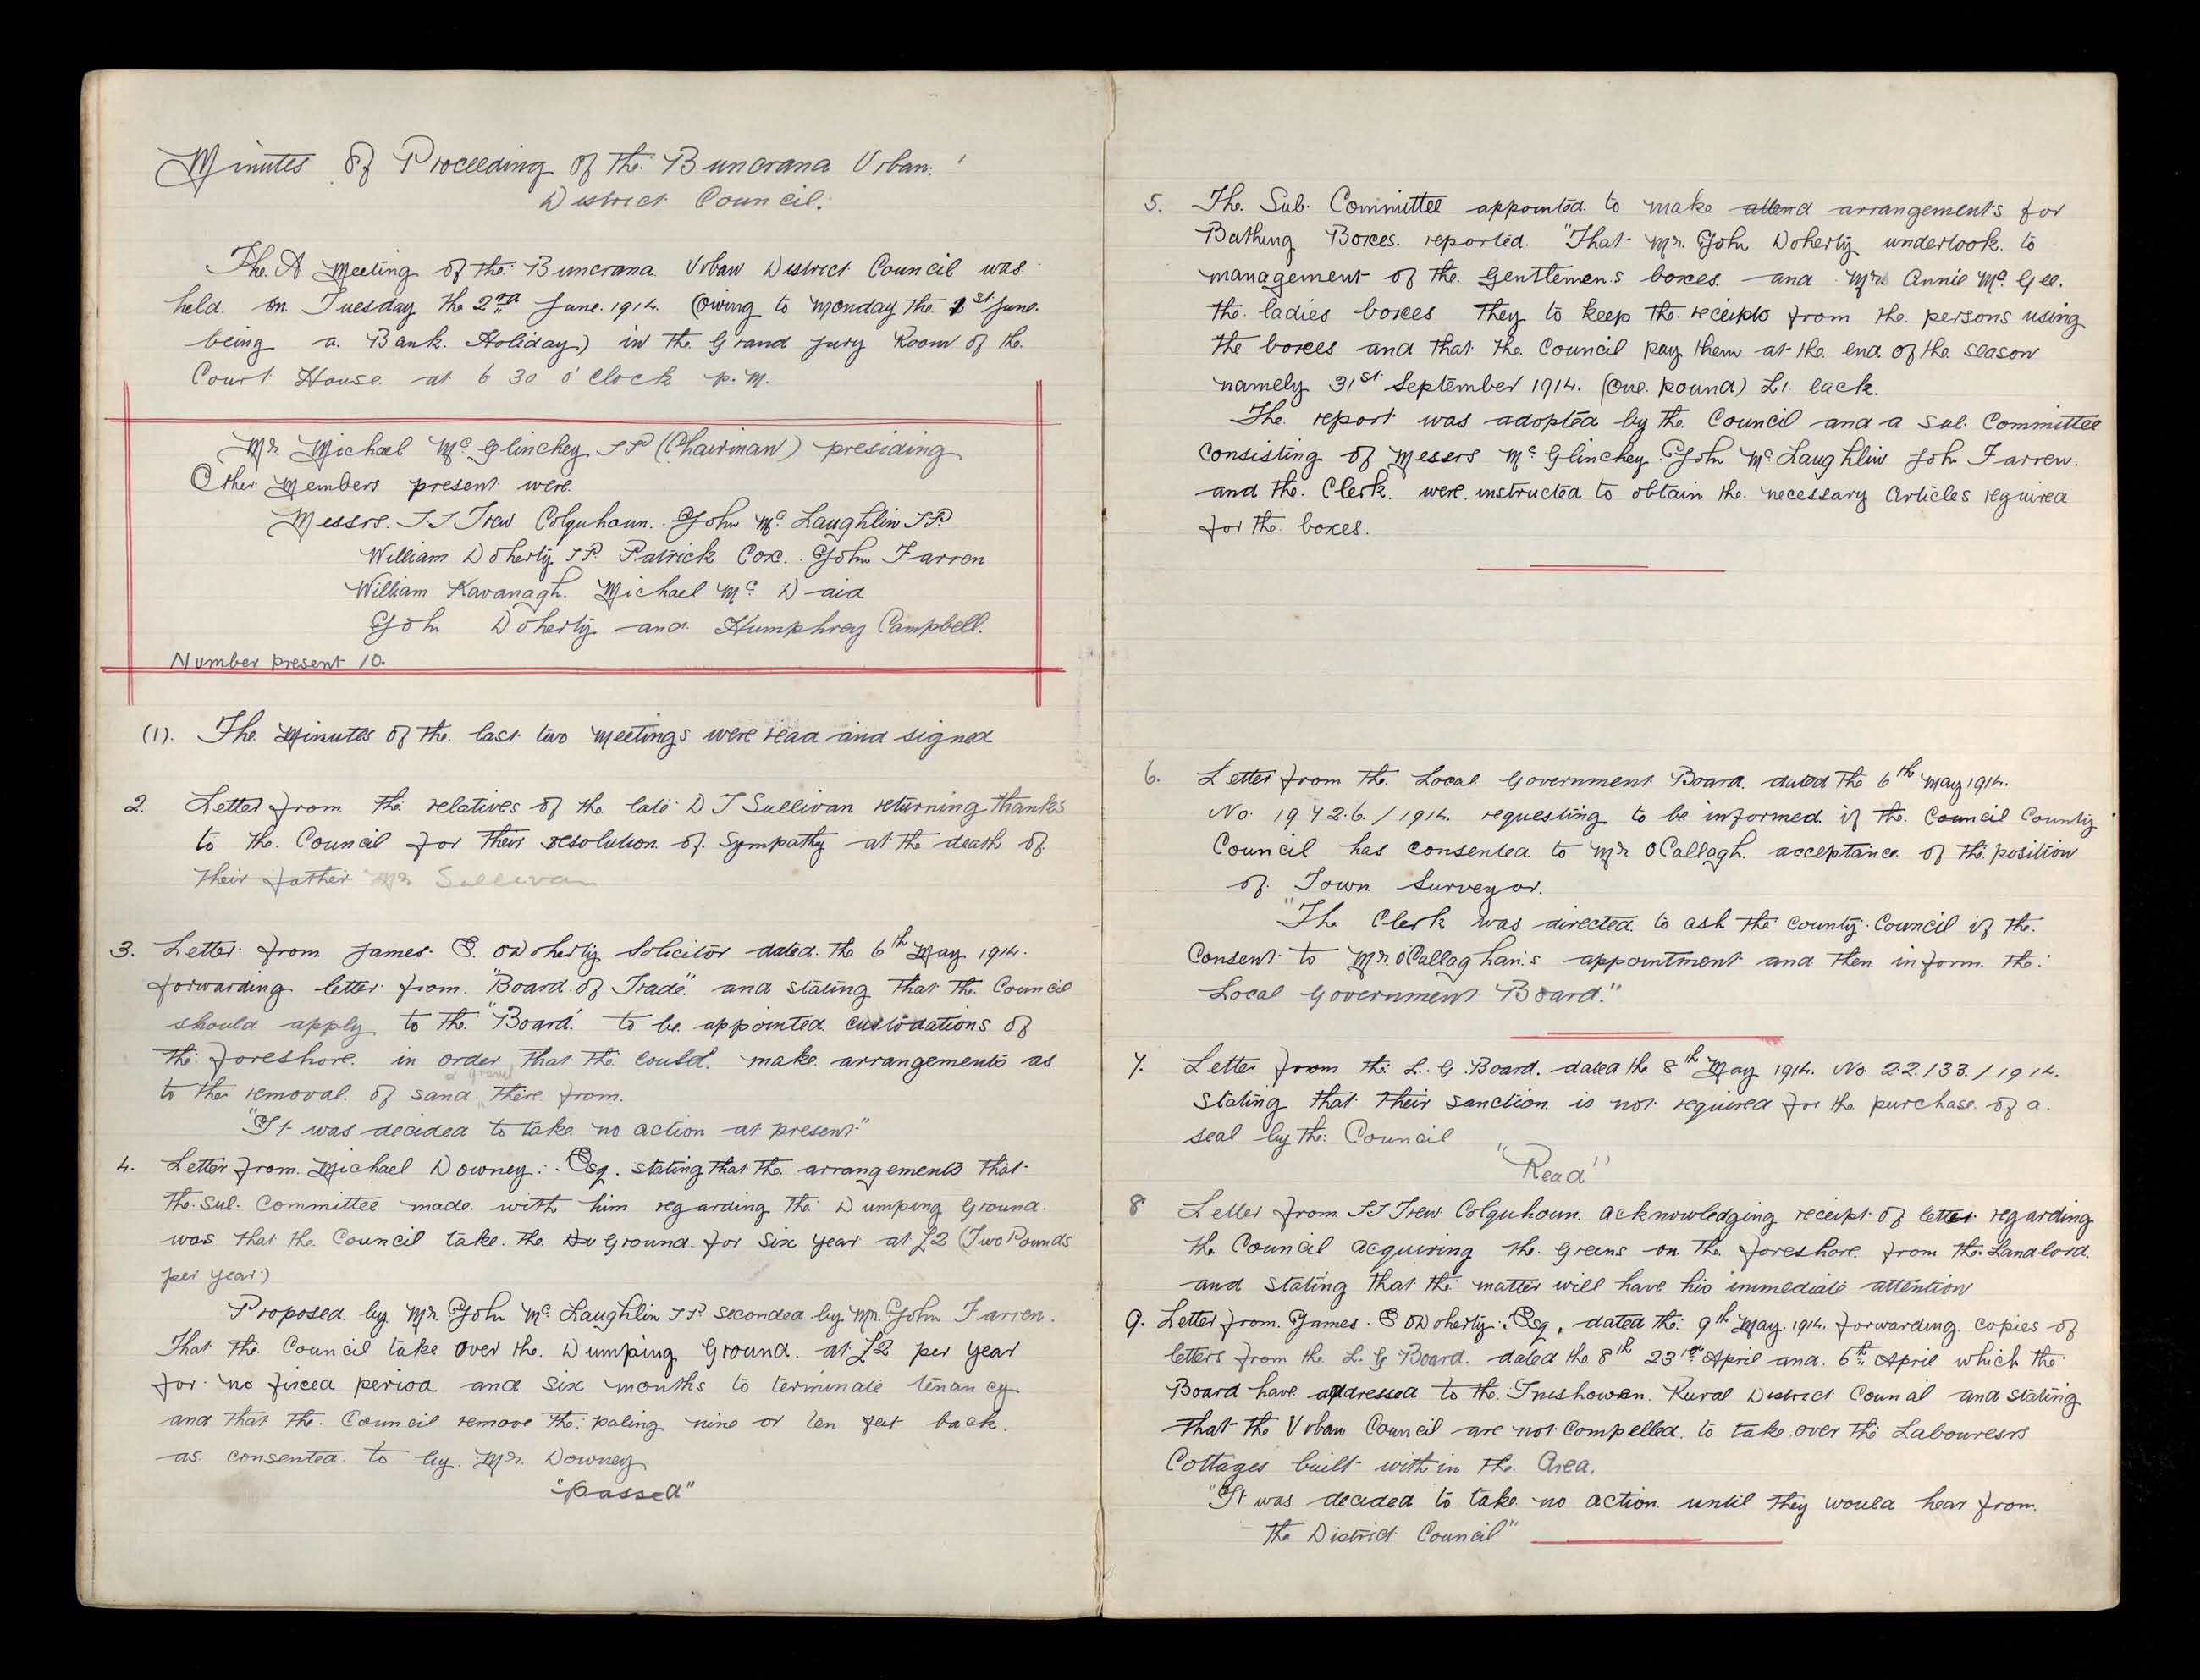 Minutes of Proceeding of the Buncrana Urban
District Council.
The A Meeting of the Buncrana Urban District Council was
held on Tuesday the 2nd June. 1914. (owing to Monday the 1st June.
being a Bank Holiday) in the Grand Jury Room of the
Court House at 6 30 o'Clock p.m.
Mr. Michael McGlinchey JP (Chairman) presiding
Other Members present were
Messrs. JJ Trew Colquhoun. John McLaughlin JP
William Doherty JP. Patrick Cox. John Farren
William Kavanagh. Michael McDaid
John Doherty and Humphrey Campbell.
Number present 10.
(1). The Minutes of the last two meetings were read and signed
2. Letter from the relatives of the late D J Sullivan returning thanks
to the Council for their resolution of Sympathy at the death of
their father Mr Sullivan
3. Letter from James E. O'Doherty Solicitor dated the 6th May 1914.
forwarding letter from "Board of Trade" and stating that the Council
should apply to the "Board" to be appointed custodations of
the foreshore in order that the could make arrangements as
& gravel
to the removal of sand there from.
"It was decided to take no action at present"
4. Letter from Michael Downey. Esq. stating that the arrangements that
the Sub. Committee made with him regarding the Dumping Ground.
was that the Council take the Du Ground for six year at £2 (Two Pounds
per year)
Proposed by Mr John McLaughlin JP. seconded by Mr. John Farren.
That the Council take over the Dumping Ground at £2 per year
for no fixed period and six months to terminate tenancy
and that the Council remove the paling nine or ten feet back.
as consented to by Mr. Downey
"Passed"
5. The Sub. Committee appointed to make attend arrangements for
Bathing Boxes. reported. "That Mr. John Doherty undertook to
management of the Gentlemen.s boxes and Mrs Annie McGee.
the ladies boxes they to keep the receipts from the persons using
the boxes and that the Council pay them at the end of the season
namely 31st September 1914. (one pound) £1 each.
The report was adopted by the Council and a Sub. Committee
consisting of Messrs McGlinchey John McLaughlin John Farren.
and the Clerk were instructed to obtain the necessary Articles required
for the boxes.
6. Letter from the Local Government Board dated the 6th May 1914.
No. 19426/1914. requesting to be informed if the Council County
Council has consented to Mr OCallagh. acceptance of the position
of Town Surveyor.
"The Clerk was directed to ask the County Council if the
Consent to Mr. O'Callaghan's appointment and then inform the
Local Government Board."
7. Letter from the L. G. Board. dated the 8th May 1914. No 22133/1914.
stating that their sanction is not required for the purchase of a
seal by the Council
"Read"
8 Letter from JJ Trew Colquhoun. acknowledging receipt of letter regarding
the Council acquiring the Greens on the foreshore from the Landlord
and stating that the matter will have his immediate attention
9. Letter from James E O'Doherty. Esq, dated the 9th May 1914. forwarding copies of
letters from the L. G Board. dated the 8th 23rd April and 6th April which the
Board have addressed to the Inishowen. Rural District Council and stating
that the Urban Council are not compelled to take over the Labouresrs
Cottages built within the Area.
"It was decided to take no action until they would hear from
the District Council"